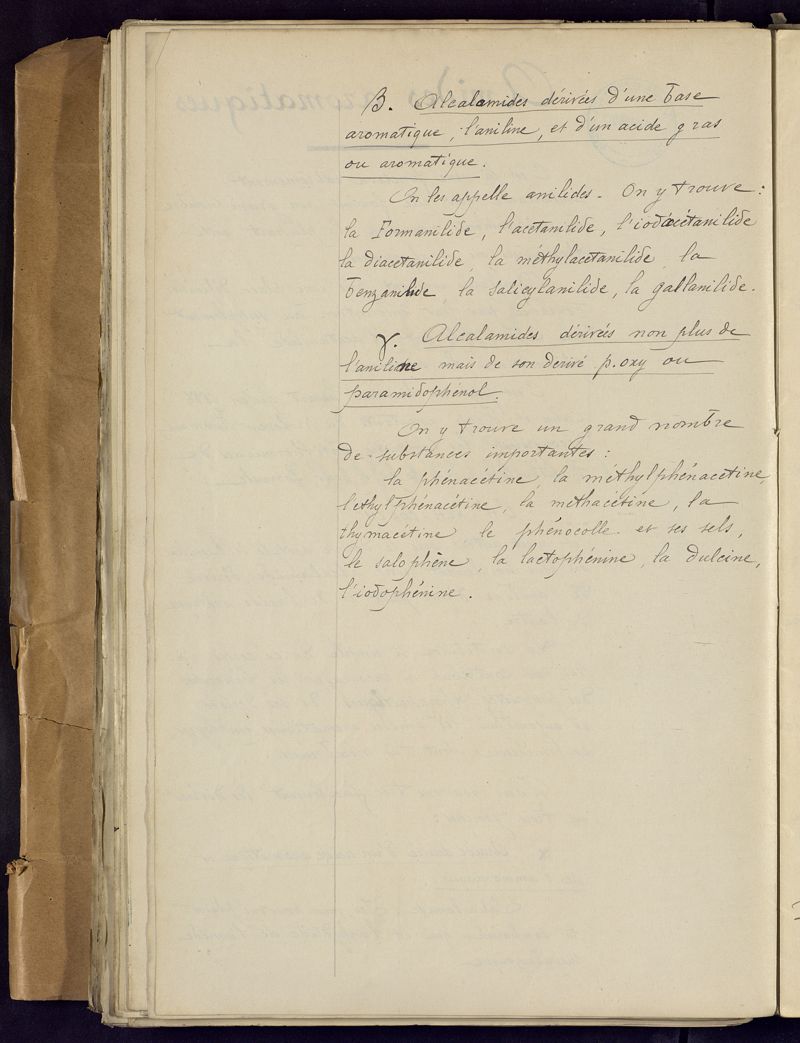 β. Alcalamides dérivées d'une base
aromatique, l'aniline, et d'un acide gras
ou aromatique.
On les appelle anilides. On y trouve :
la Formanilide, l'acétanilide, l'iodacétanilide
la diacetanilide, la méthylacetanilide, la
benzanilide, la salicylanilide, la gallanilide.
γ. Alcalamides dérivées non plus de
l'aniline mais de son derivé p. oxy ou
paramidophénol.
On y trouve un grand nombre
de substances importantes :
la phénacétine, la méthylphénacétine,
l'éthylphénacétine, la méthacétine, la
thymacétine le phénocolle et ses sels,
le salophène, la lactophénine, la dulcine,
l'iodophénine.